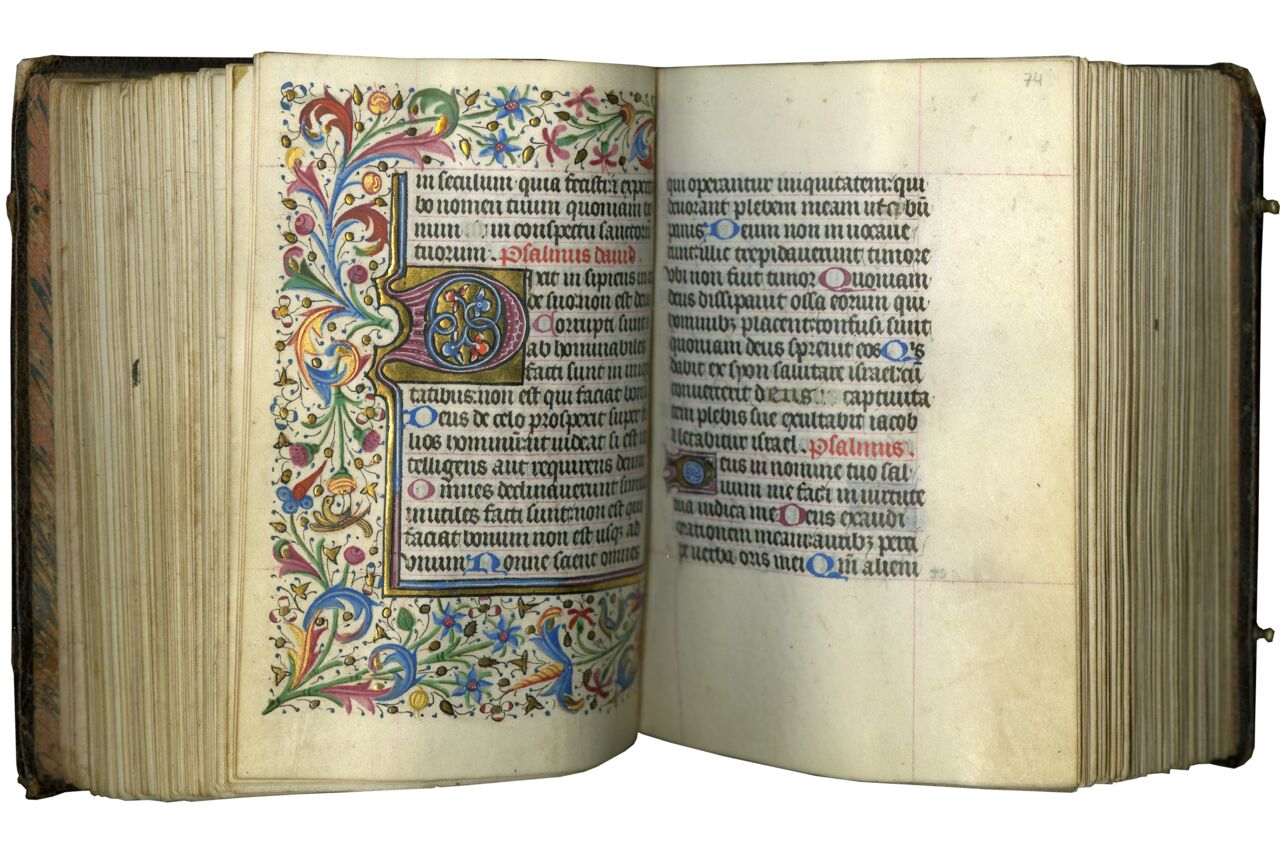 in seculum quia fecisti: & expecta
bo nomen tuum quoniam bo
num in conspectu sanctorū
tuorum. Psalmus david.
Dixit in sipiens in c
de suo: non est deus
Corrupti sunt &
ab hominabiles
facti sunt in iniqui
tatibus: non est qui faciat bonū
Deus de celo prospexit super fi
lios hominū: ut videat si est in
telligens aut requirens deum
Omnes declinaverunt simul
inutiles facti sunt: non est qui
faciat bonum non est usq; ad
unum Nonne scient omnes
74
qui operantur iniquitatem: qui
devorant plebem meam ut cibū
panis Deum non in vocave
runt: illic trepidaverunt timore
ubi non fuit timor Quoniam
deus dissipavit ossa eorum qui
hominibꝫ placent: confusi sunt
quoniam deus sprevit eos Qis
dabit ex syon salutare israel: cū
converterit deus captivita
tem plebis sue exultabit iacob
& letabitur israel. Psalmus.
Deus in nomine tuo sal
vum me fac: & in virtute
tua iudica me Deus exaudi
orationem meam: auribꝫ perci
pe verba oris mei Qm̄ alieni